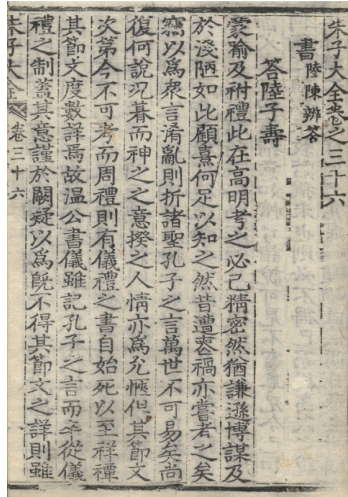 朱子大全卷之三十六
書陸陳辨答
答陸子壽
蒙喻及祔禮此在高明考之必已精密然猶謙遜博謀及
於淺陋如此顧熹何足以知之然昔遭喪禍亦嘗考之矣
竊以爲衆言淆亂則折諸聖孔子之言萬世不可易矣尚
復何說況暮而神之之意揆之人情亦爲允愜但其節文
次第今不可考而周禮則有儀禮之書自始死以至祥禫
其節文度數詳焉故温公書儀雖記孔子之言而卒從儀
禮之制蓋其意謹於闕疑以爲旣不得其節文之詳則雖
朱子大全 卷三十六